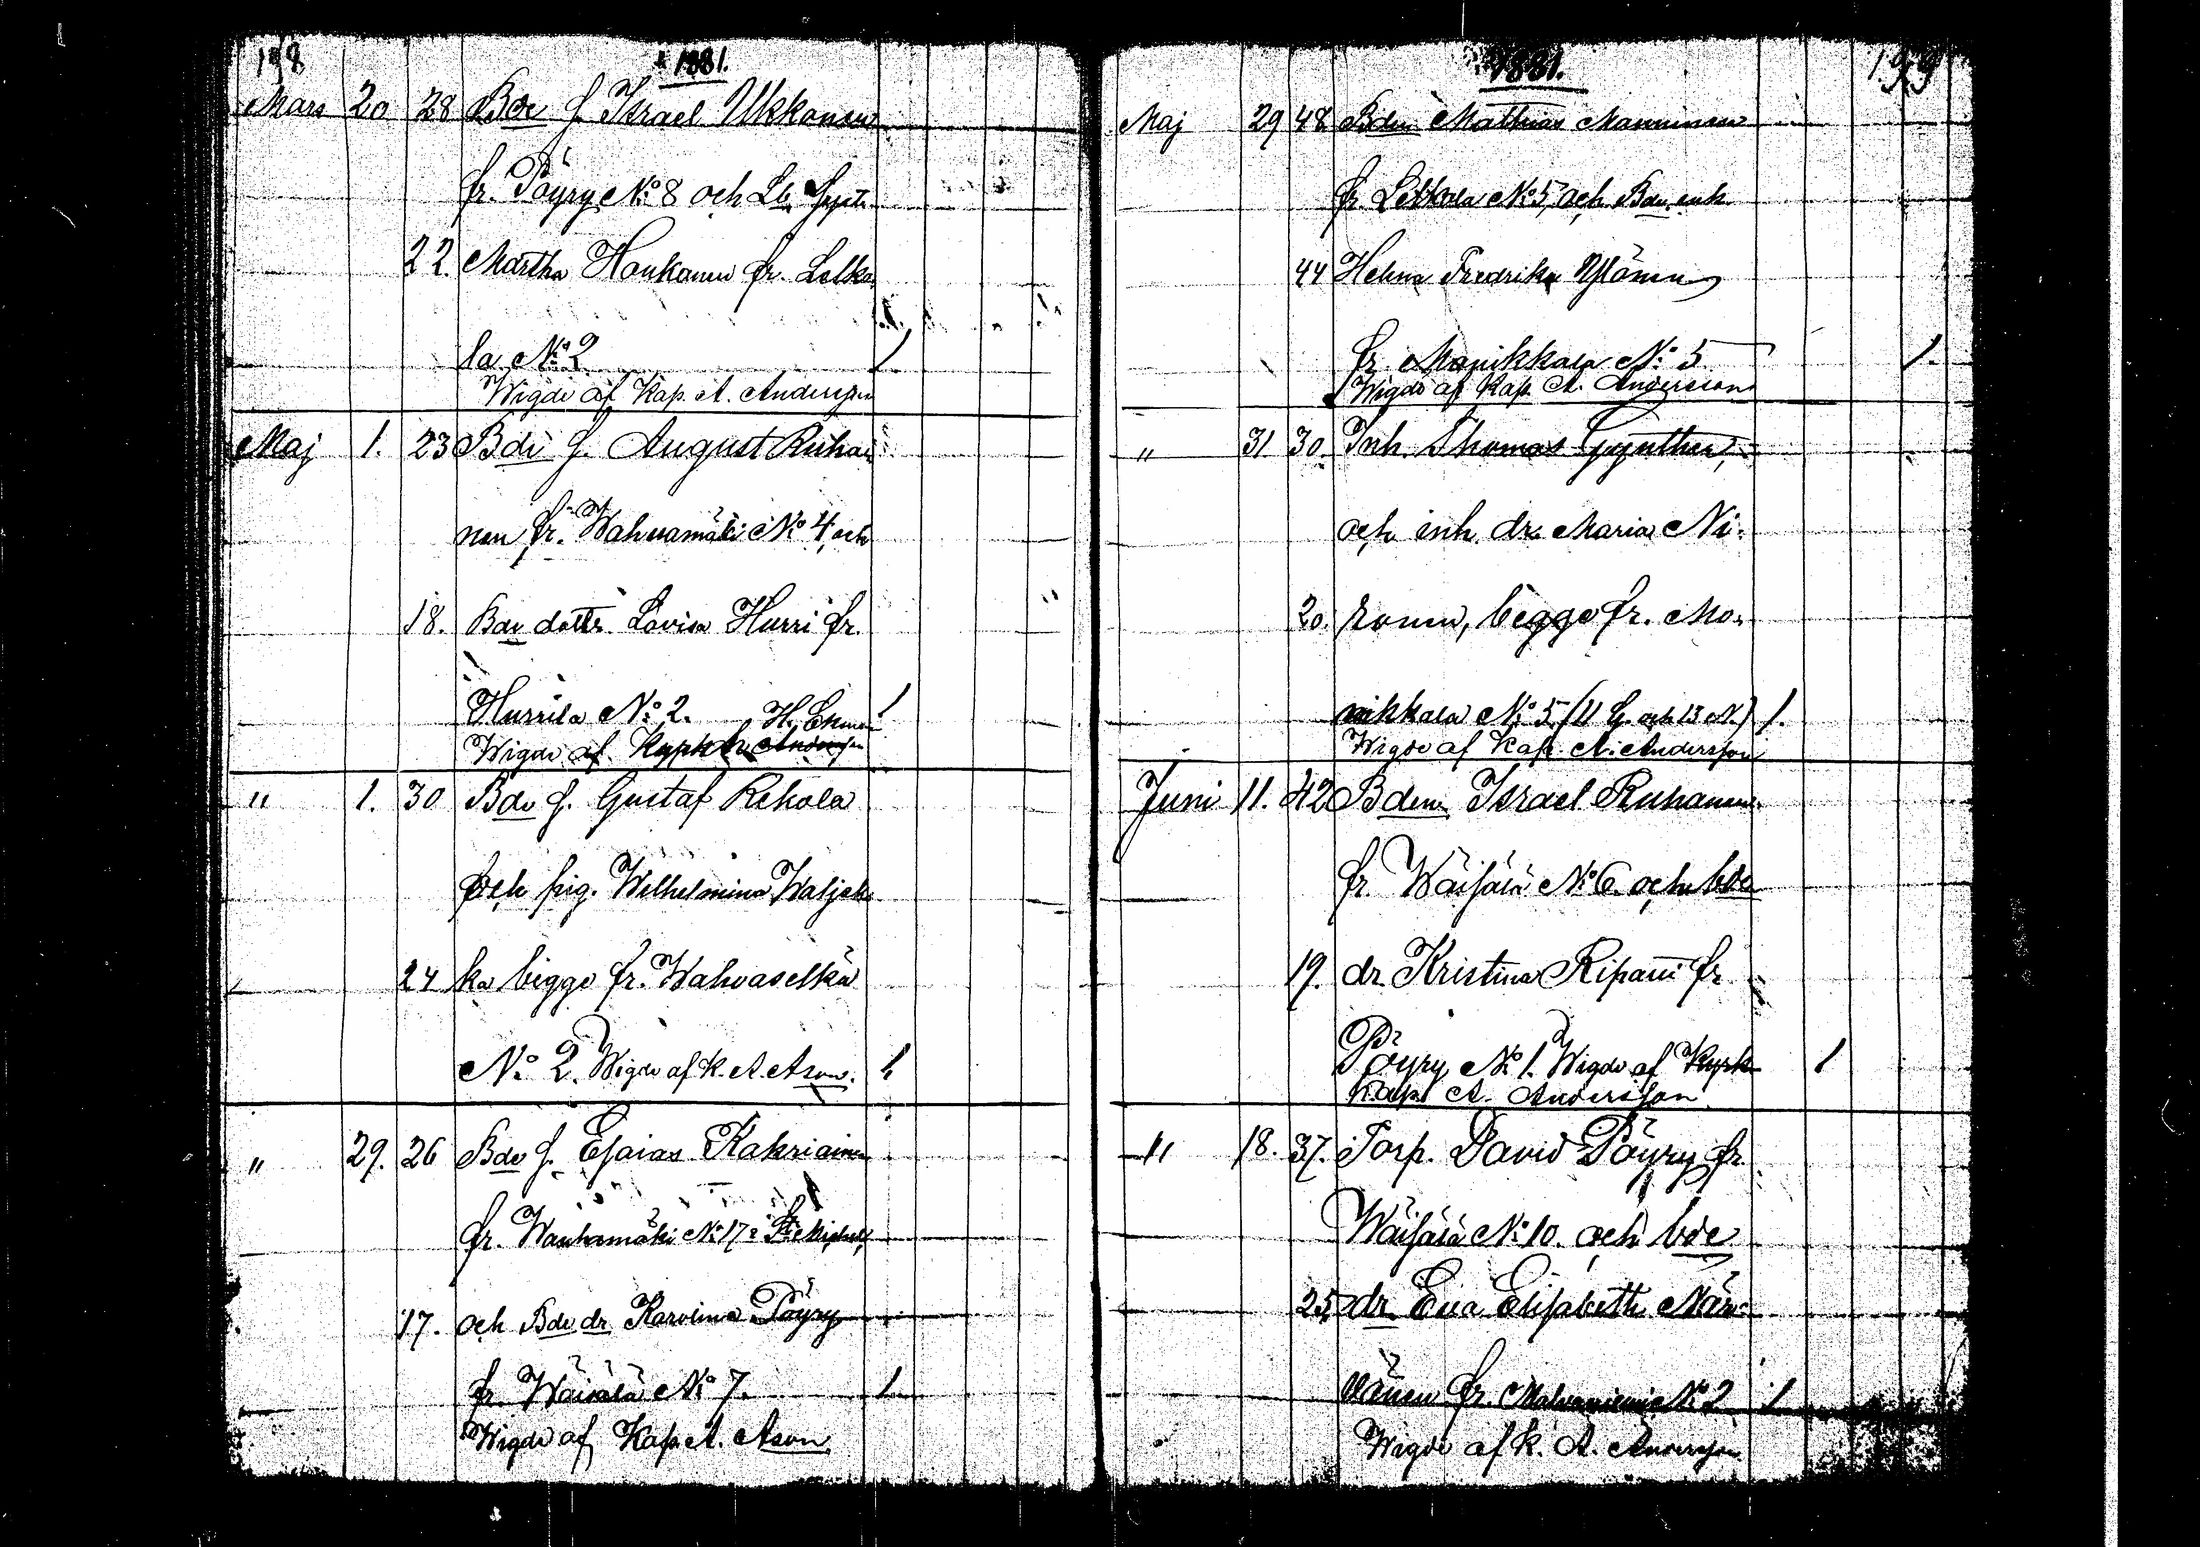 198
1881.
Mars 20 28 Bde s. Israel Ukkonen
fr. Pöyry No 8 och Lb.
22 Martha Honkanen fr. Lelko
la No 2 1
Wigde af Kap. A. Andersson
Maj 1. 23 Bde s. August Ruha
nen fr. Wahvamäki No 4 och
18. Bde dottr. Lovisa Hurri fr.
Hurrila No 2. H. Ekman 1
Wigde af Kyrk
" 1. 30 Bde s. Gustaf Rekola
och pig. Wilhelmina Waljak
24 ka bigge fr. Wahvaselkä
No 2. Wigde af K. A. Ason. 1
" 29. 26 Bde s. Esaias Kakriainen
fr. Wanhamäki No 17 i
17. och Bde dr Karolina Pöyry
fr. Wäisälä No 7. 1
Wigde af Kap. A. Ason
1881. 199
Maj 29 48 Bden Mathias Manninen
fr. Lelkola No 5, och Bde enk.
44 Helena Fredrika Ylönen
fr. Monikkala No 5 1.
Wigde af Kap. A. Andersson
" 31 30. Inh. Thomas Gynther,
och inh. dr. Maria Ni-
20. ronen, begge fr. Mo-
nikkala No 5 (11 G. och 13 N.) 1.
Wigde af Kap. A. Andersson
Juni 11. 42 Bden Israel Ruhanen
fr. Wäisälä No 6. och bde
19. dr. Kristina Ripatti fr
Pöyry No 1. Wigde af Kyrk 1
Kap. A. Andersson
" 18. 37. Torp. David Pöyry fr.
Wäisälä No 10. och bde
25 dr. Eva Elisabeth När-
vänen fr. No 2 1
Wigde af K. A. Andersson